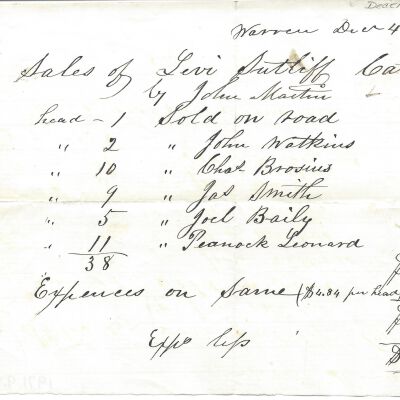 Decem
Warren Decr 4
Sales of Levi Sutliff Ca
by John Martin
head - 1 Sold on road
" 2 " John Watkins
" 10 " Chas Brosius
" 9 " Jas Smith
" 5 " Joel Baily
" 11 " Peanock Leonard
38
Expences on Same ($4.84 per head
Exps
$